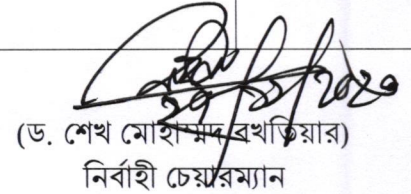 (ড. শেখ মোহাম্মদ বখতিয়ার)
নির্বাহী চেয়ারম্যান